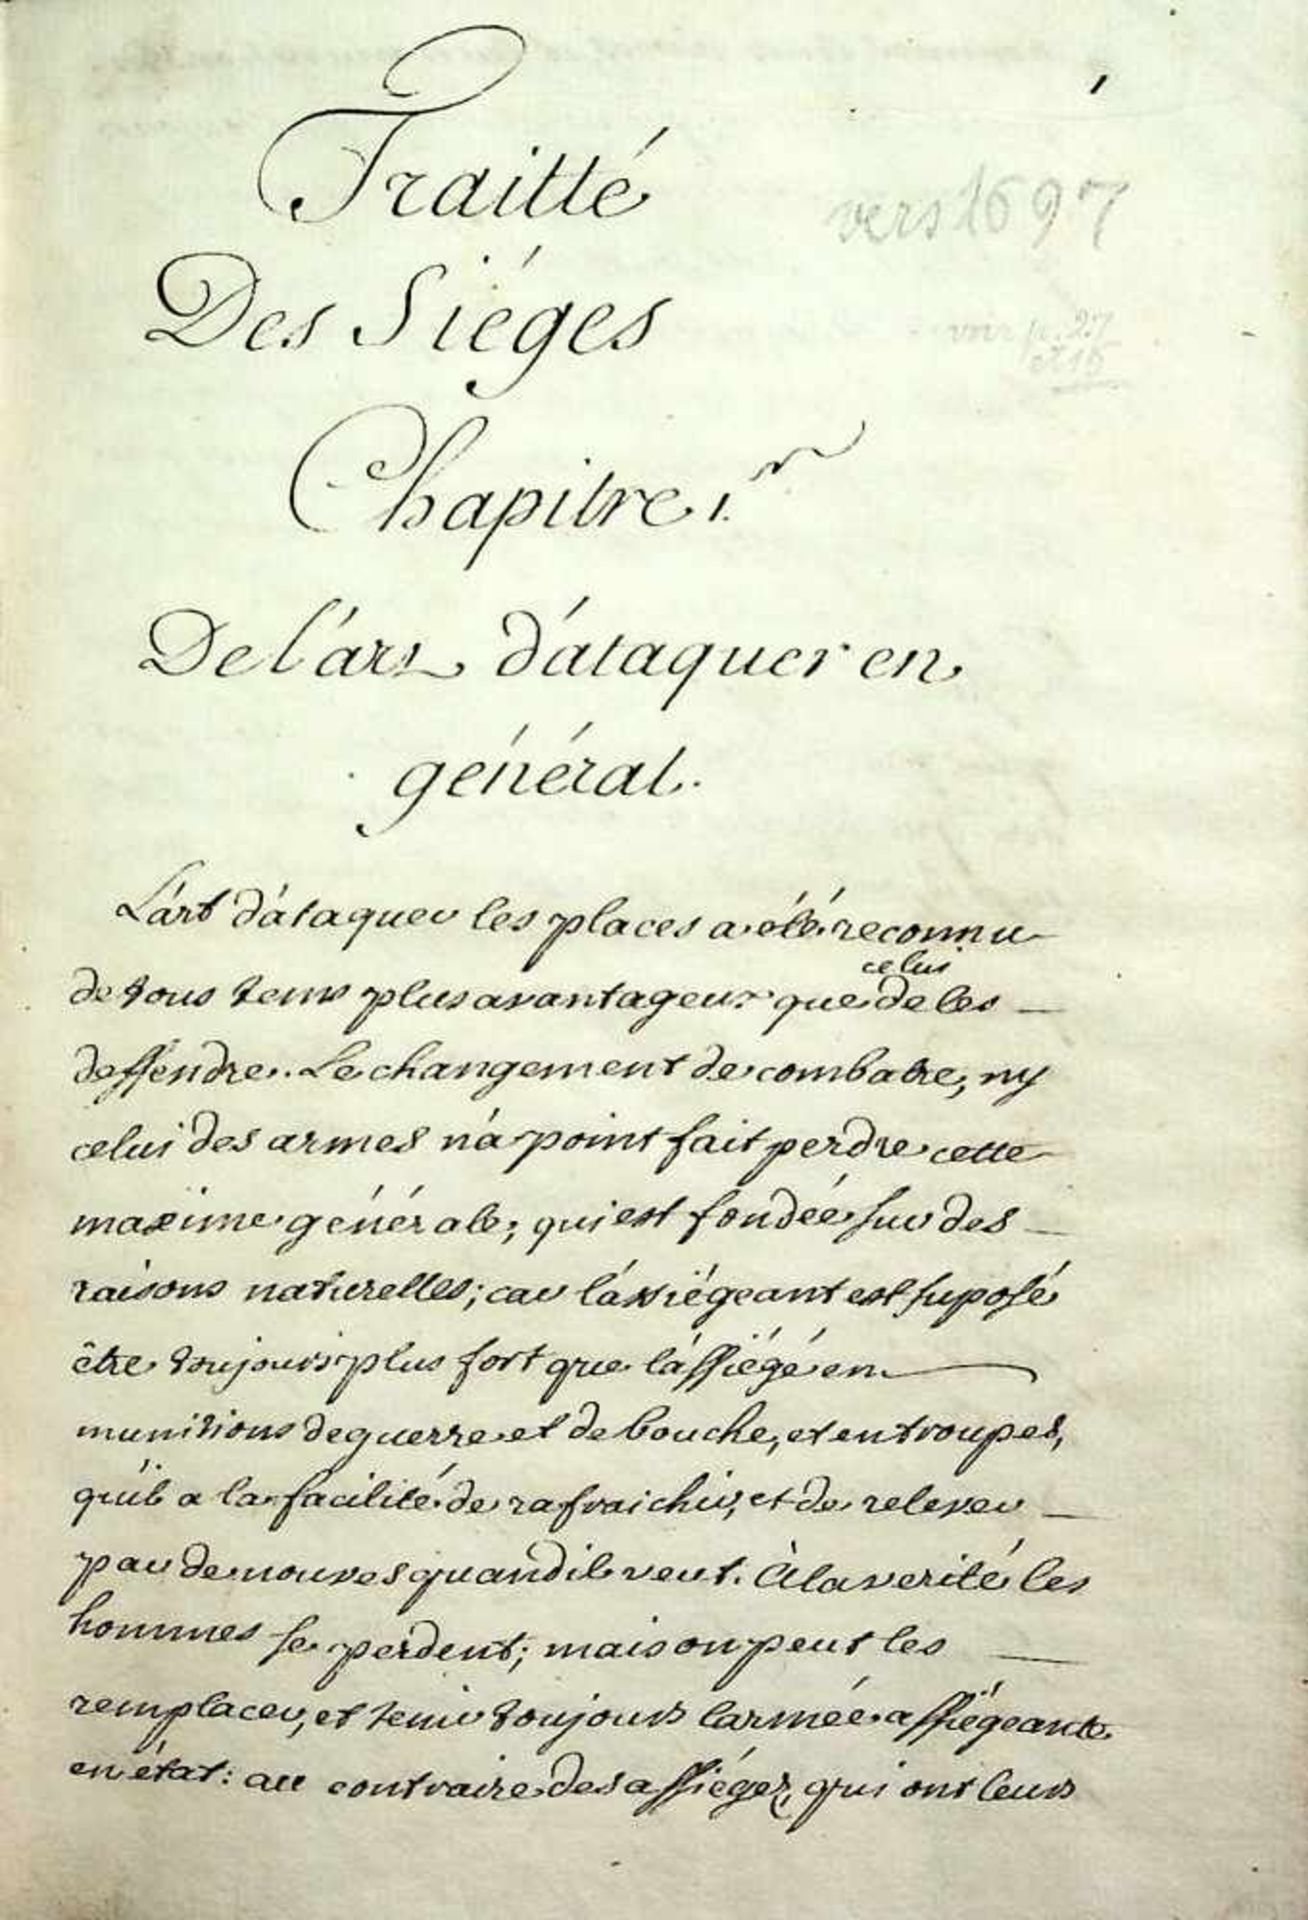 1
Traitté
vers 1697
Des Siéges
voir p. 27
et 15
Chapitre 1.er
De l'art d'ataquer en
général.
L'art d'ataquer les places a été reconnu
celui
de tous tems plus avantageux que de les
deffendre. Le changement de combatre, ny
celui des armes n'a point fait perdre cette
maxime générale; qui est fondée sur des
raisons naturelles; car l'assiégeant est suposé
être toujours plus fort que l'assiégé en
munitions de guerre et de bouche, et en troupes,
qu'il a la facilité de rafraichir, et de relever
par de nouves quand il veut. À la verité les
hommes se perdent; mais on peut les
remplacer, et tenir toujours l'armée assiégeante
en état: au contraire des assiégez, qui ont leurs